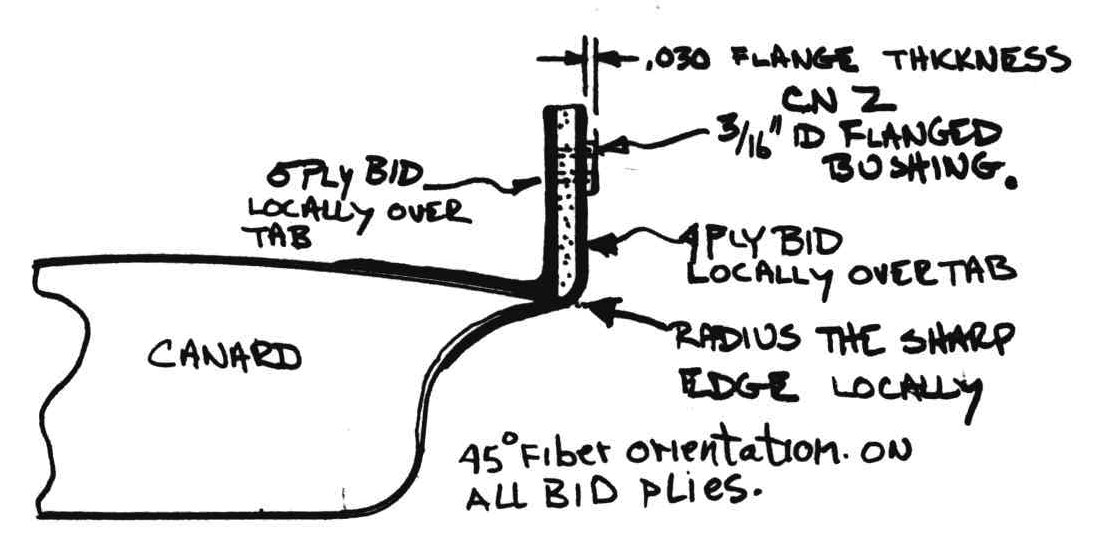 .030 FLANGE THICKNESS
CN 2
3/16" ID FLANGED
BUSHING.
5 PLY BID
LOCALLY OVER
TAB
4 PLY BID
LOCALLY OVER TAB
CANARD
RADIUS THE SHARP
EDGE LOCALLY
45° Fiber orientation. ON
ALL BID PLIES.